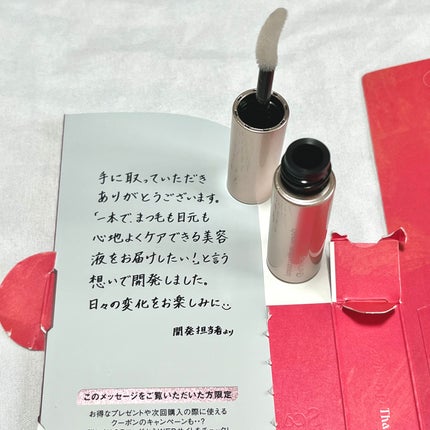 手に取っていただき
ありがとうございます。
「一本で、まつ毛も目元も
心地よくケアできる美容
液をお届けしたい!」と言う
想いで開発しました。
日々の変化をお楽しみに
開発担当者より
このメッセージをご覧いただいた方限定
お得なプレゼントや次回購入の際に使える
クーポンのキャンペーンも‥?
Tha